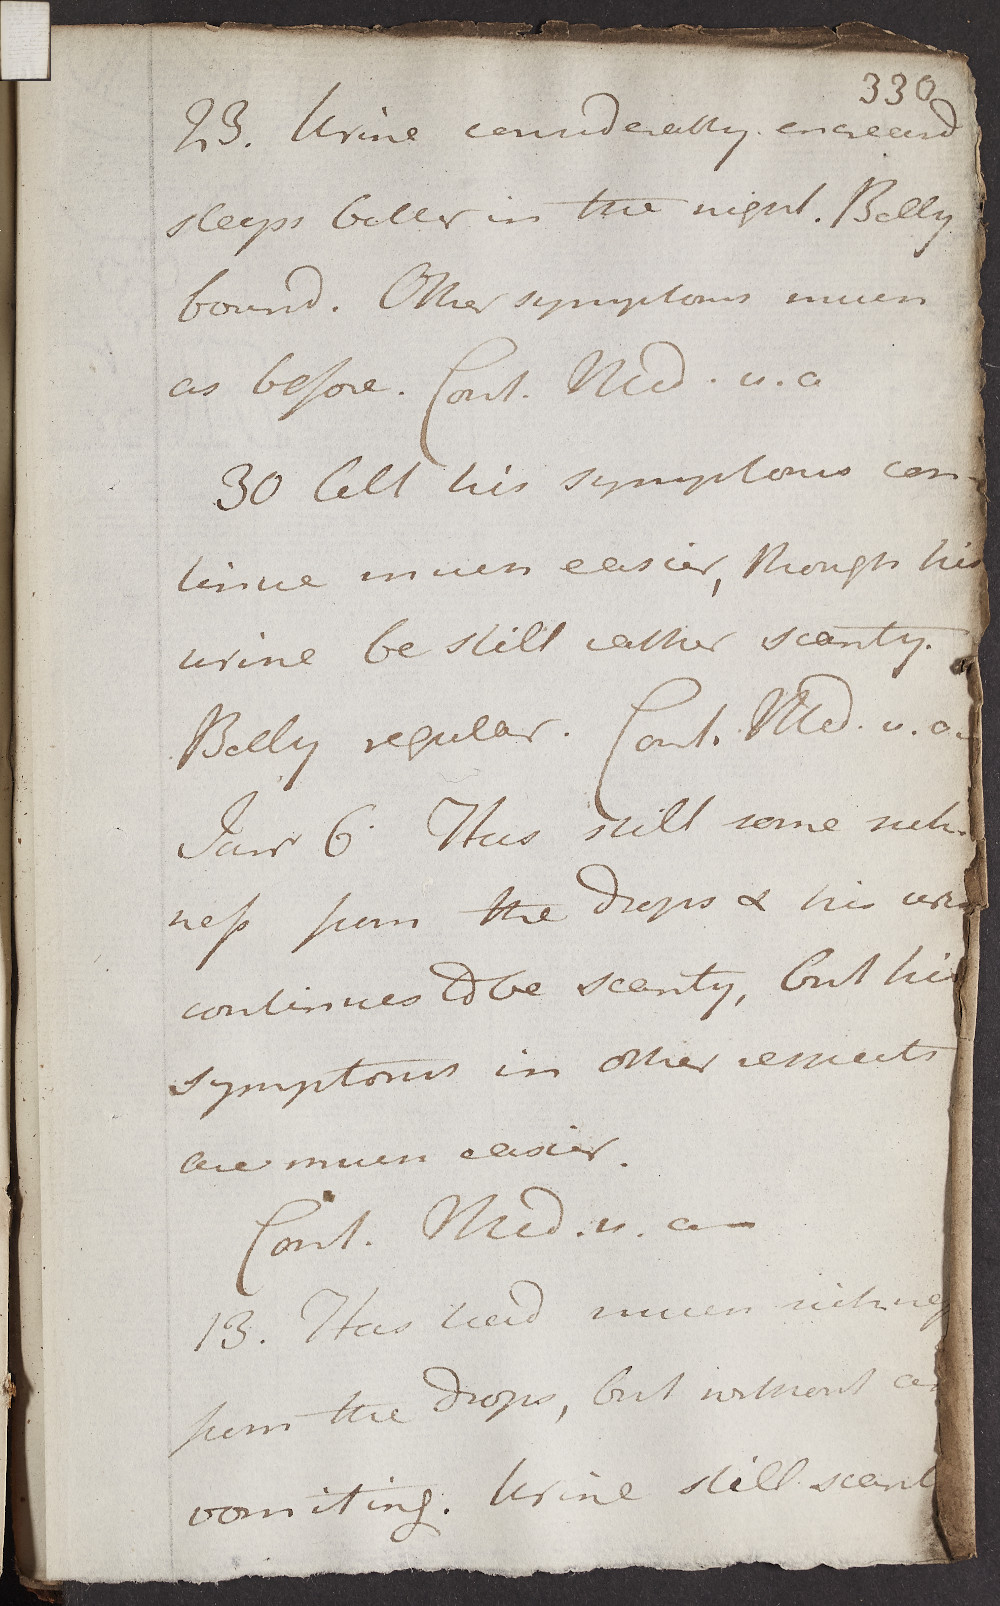 330
23. Urine considerably encreasd
sleeps better in the night. Belly
bound. Other symptoms much
as before. Cont. Med. u. a
30 his symptoms con-
tinue much easier, though his
urine be still rather scanty.
Belly regular. Cont. Med. u. a.
Janr 6. Has still some sick-
neſs from the drops & his
continues to be scanty, but his
symptoms in other respects
are much easier.
Cont. Med. u. a
13. Has had much sickneſ
from the drops, but without
vomiting. Urine still scant